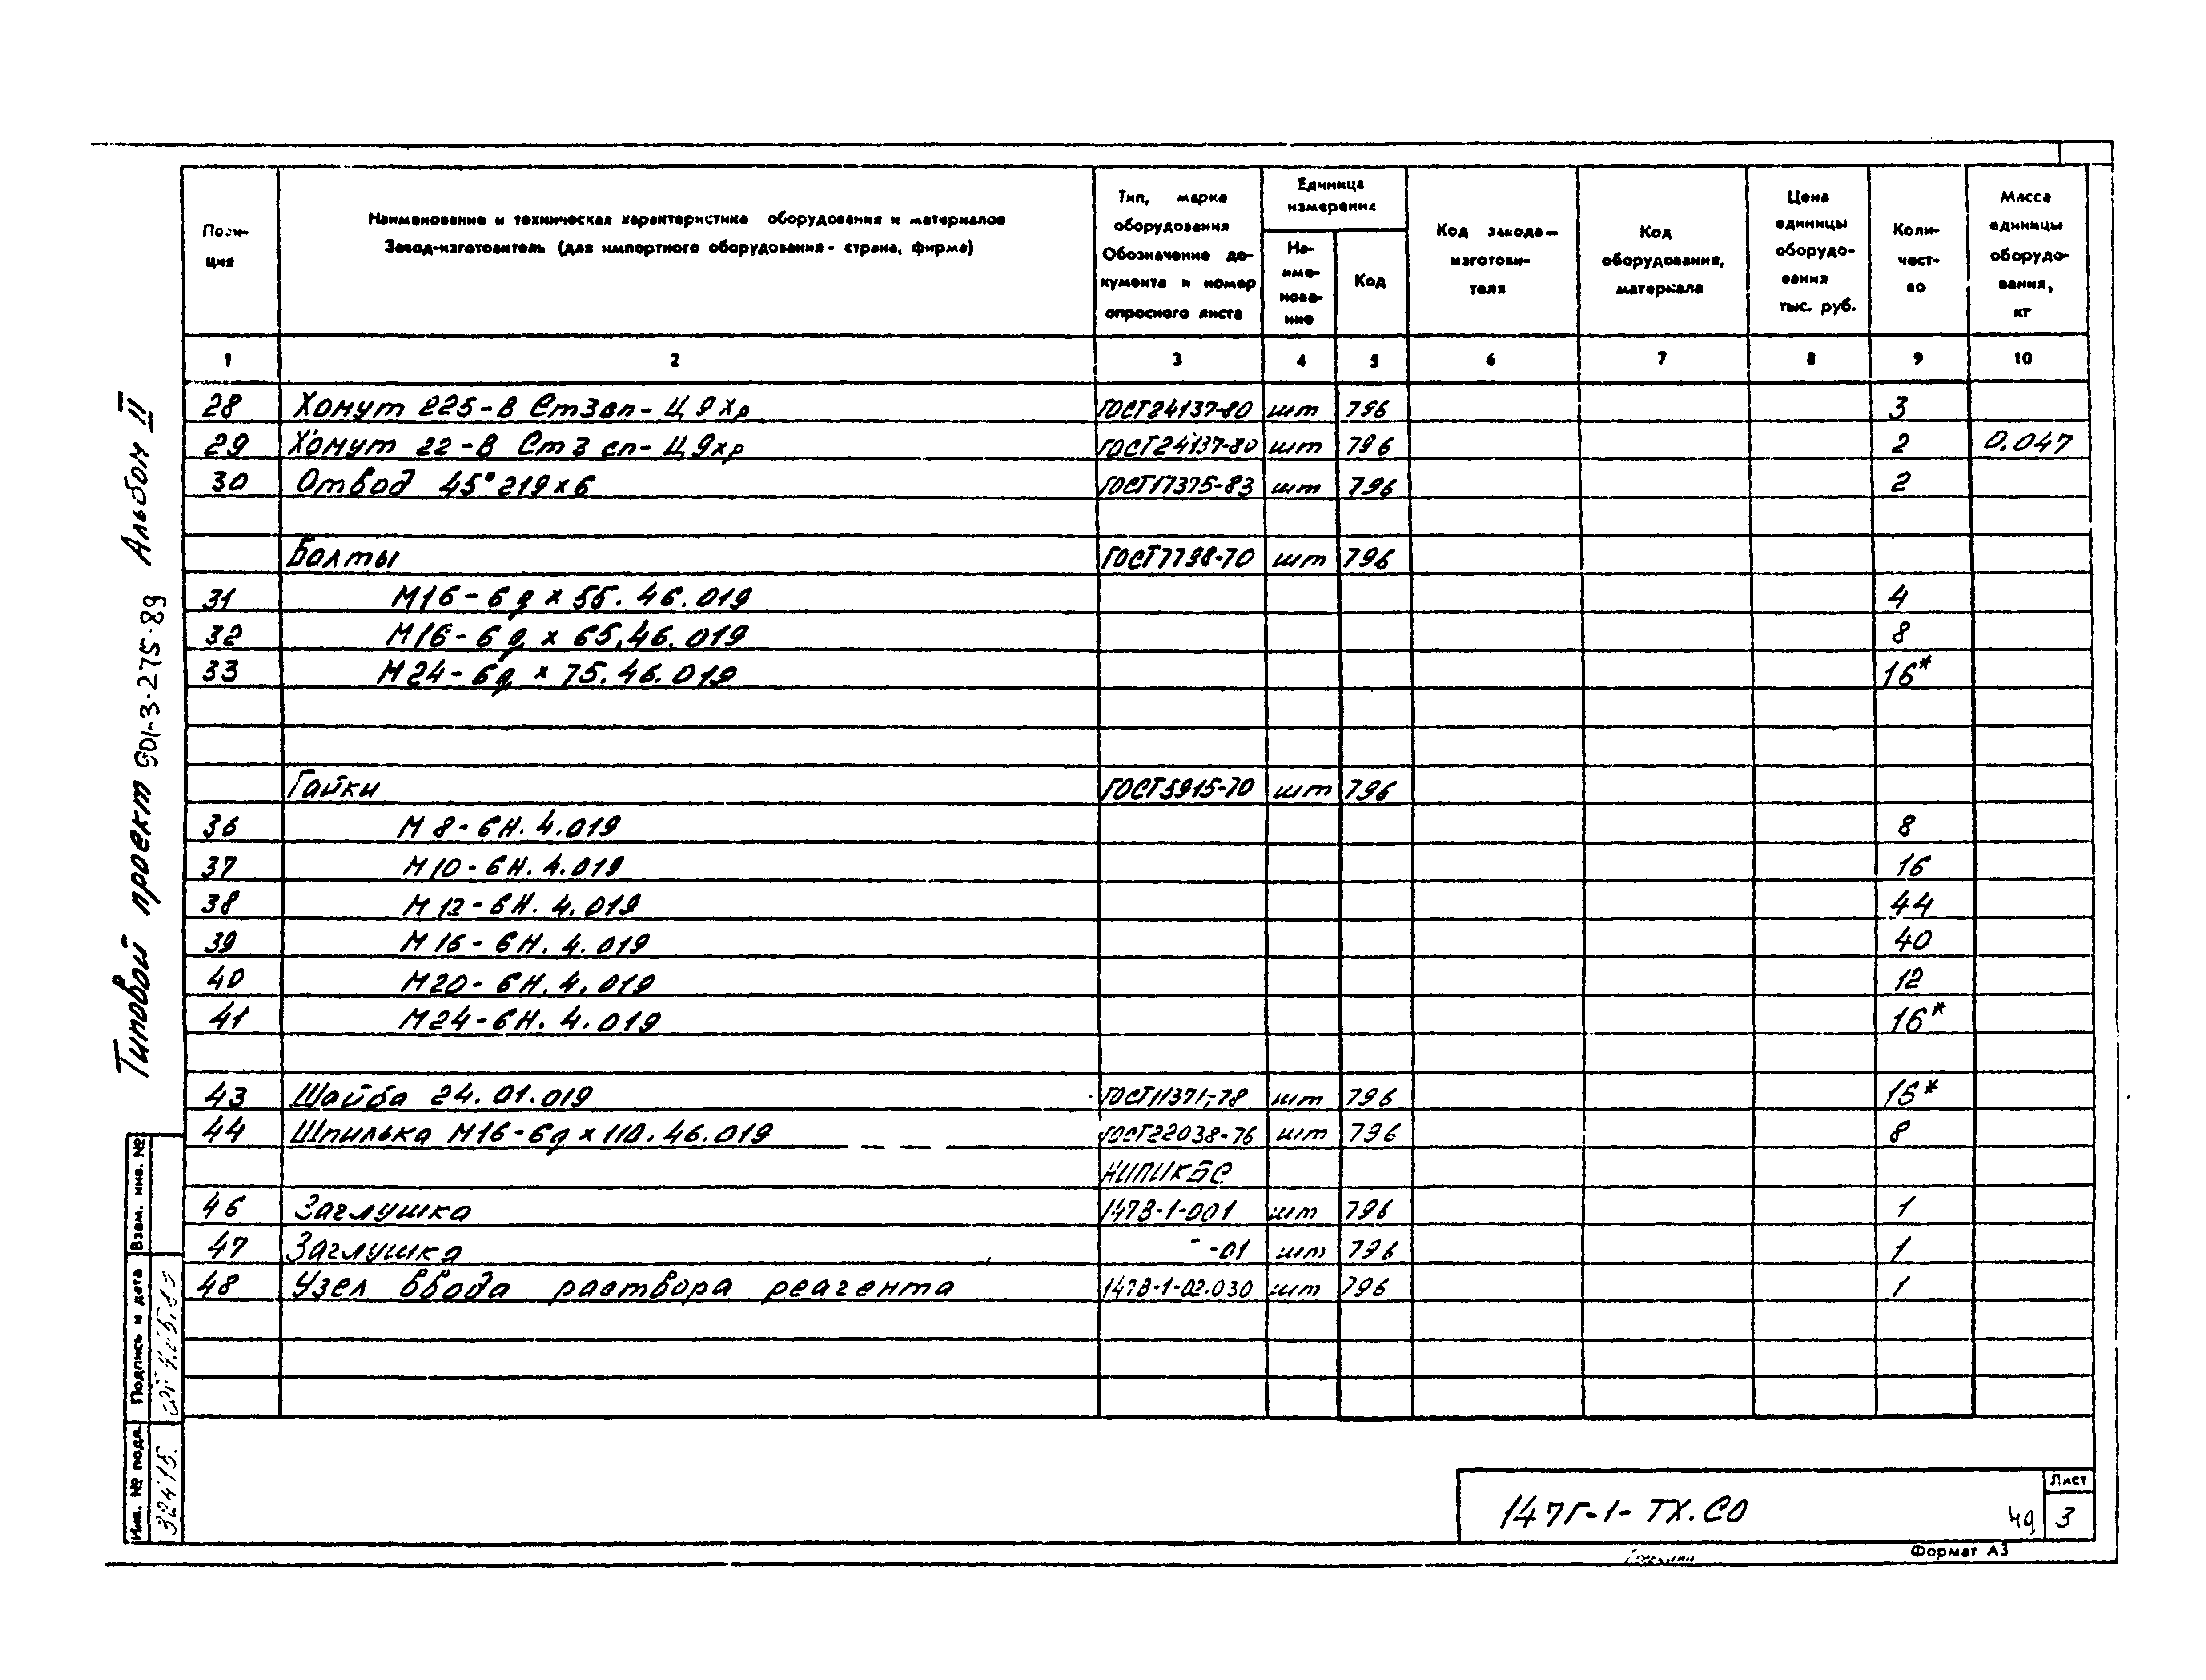 Типовой проект 901-3-275.89 Альбом II
Пози-
ция
Наименование и техническая характеристика оборудования и материалов
Завод-изготовитель (для импортного оборудования - страна, фирма)
Тип, марка
оборудования
Обозначение до-
кумента и номер
опросного листа
Единица
измерения
На-
име-
нова-
ние
Код
Код завода—
изготови-
теля
Код
оборудования,
материала
Цена
единицы
оборудо-
вания
тыс. руб.
Коли-
чест-
во
Масса
единицы
оборудо-
вания,
кг
1 2 3 4 5 6 7 8 9 10
28 Хомут 225-В Ст3сп-Ц9хр ГОСТ24137-80 шт 796 3
29 Хомут 22-В Ст3сп-Ц9хр ГОСТ24137-80 шт 796 2 0.047
30 Отвод 45° 219х6 ГОСТ17375-83 шт 796 2
Болты ГОСТ7798-70 шт 796
31 М16-6g х 55.46.019 4
32 М16-6g х 65.46.019 8
33 М24-6g х 75.46.019 16*
Гайки ГОСТ5915-70 шт 796
36 М8-6Н.4.019 8
37 М10-6Н.4.019 16
38 М12-6Н.4.019 44
39 М16-6Н.4.019 40
40 М20-6Н.4.019 12
41 М24-6Н.4.019 16*
43 Шайба 24.01.019 ГОСТ11371-78 шт 796 16*
44 Шпилька М16-6g х 110.46.019 ГОСТ22038-76 шт 796 8
НИПИКБС
46 Заглушка 147В-1-001 шт 796 1
47 Заглушка -01 шт 796 1
48 Узел ввода раствора реагента 147В-1-02.030 шт 796 1
Взам. инв. №
Подпись и дата
Инв. № подл.
32415
147Г-1-ТХ.СО
49
Лист
3
Формат А3